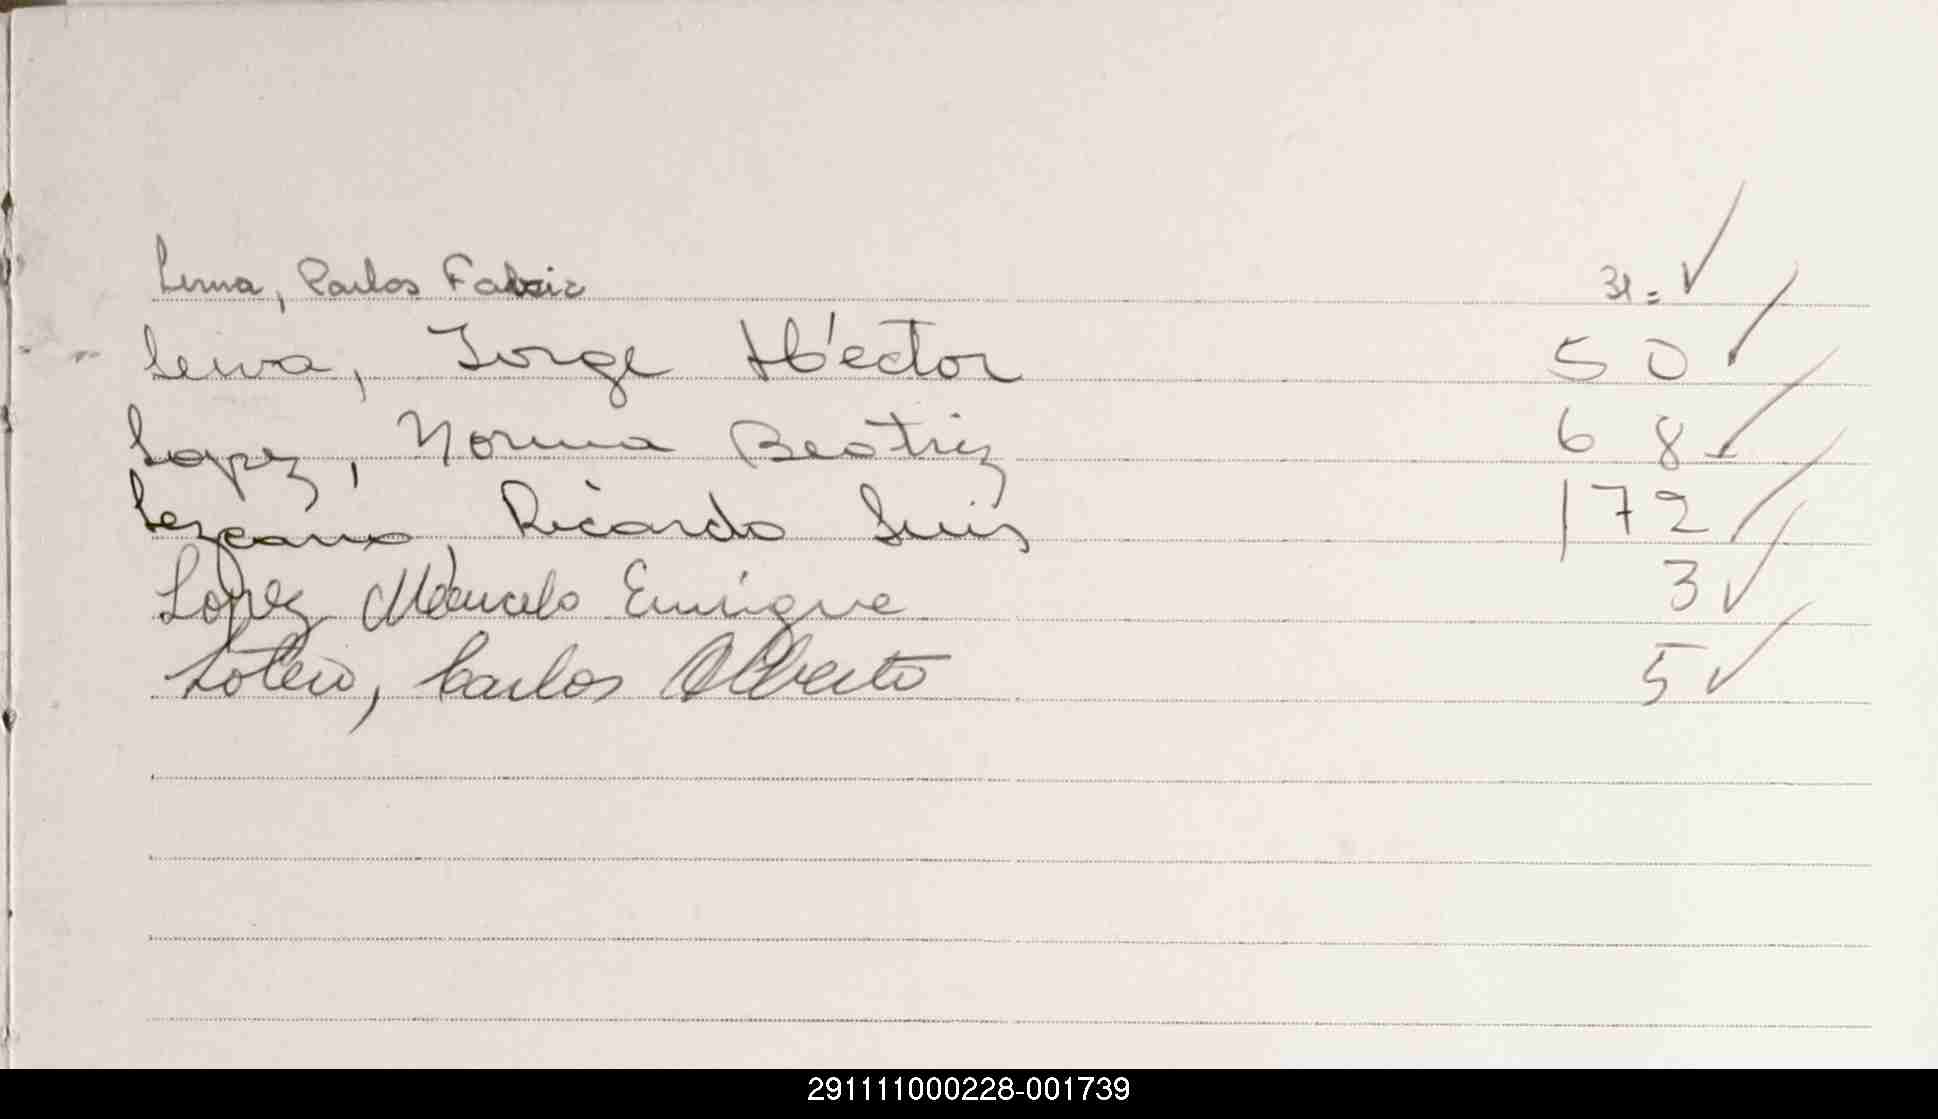 Lerma, Carlos Fabio 31= ✓
Leiva, Jorge Héctor 50 ✓
Lopez, Norma Beatriz 68 ✓
Lezcano, Ricardo Luis 172 ✓
Lopez Marcelo Enrique 3 ✓
Lotero, Carlos Alberto 5 ✓
291111000228-001739